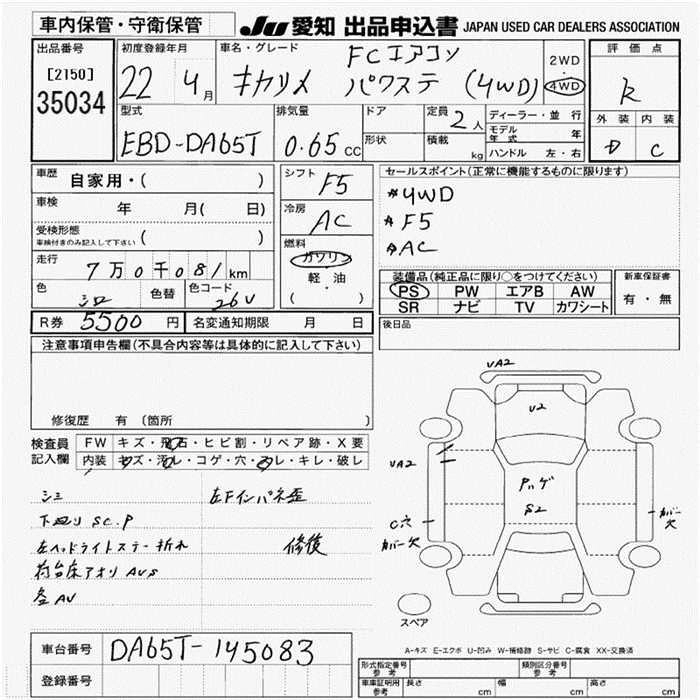 車内保管・守衛保管
JU 愛知 出品申込書 JAPAN USED CAR DEALERS ASSOCIATION
出品番号
[2150]
35034
初度登録年月
22 4月
車名・グレード
FCエアコン
キャリィ パワステ (4WD)
2WD
・
4WD
評価点
R
外装 内装
D C
型式
EBD-DA65T
排気量
0.65 CC
ドア
形状
定員
2人
積載
kg
ディーラー・並行
モデル年式 年
ハンドル 左・右
車歴
自家用・( )
車検
年 月( 日)
受検形態
車検付きのみ記入して下さい ( )
走行
7万0千081km
色
シロ
色替
色コード
26U
シフト
F5
冷房
AC
燃料
ガソリン
軽・油
( )
セールスポイント(正常に機能するものに限ります)
*4WD
*F5
*AC
装備品(純正品に限り○をつけてください)
PS PW エアB AW
SR ナビ TV カワシート
新車保証書
有・無
R券 5500円 名変通知期限 月 日
後日品
注意事項申告欄(不具合内容等は具体的に記入して下さい)
修復歴 有 〔箇所 〕
検査員
記入欄
FW キズ・飛石・ヒビ割・リペア跡・X要
内装 キズ・汚レ・コゲ・穴・スレ・キレ・破レ
シミ
下廻りSC.P
左ヘッドライトステー折れ
荷台床アオリAUS
左Fインパネ歪
修復
UA2
U2
UA2
S2
C穴
カバー欠
カバー欠
スペア
A-キズ E-エクボ U-凹み W-補修跡 S-サビ C-腐食 XX-交換済
車台番号 DA65T-145083
登録番号
形式指定番号
参考
類別区分番号
参考
車庫証明用
参考
長さ cm 幅 cm 高さ cm